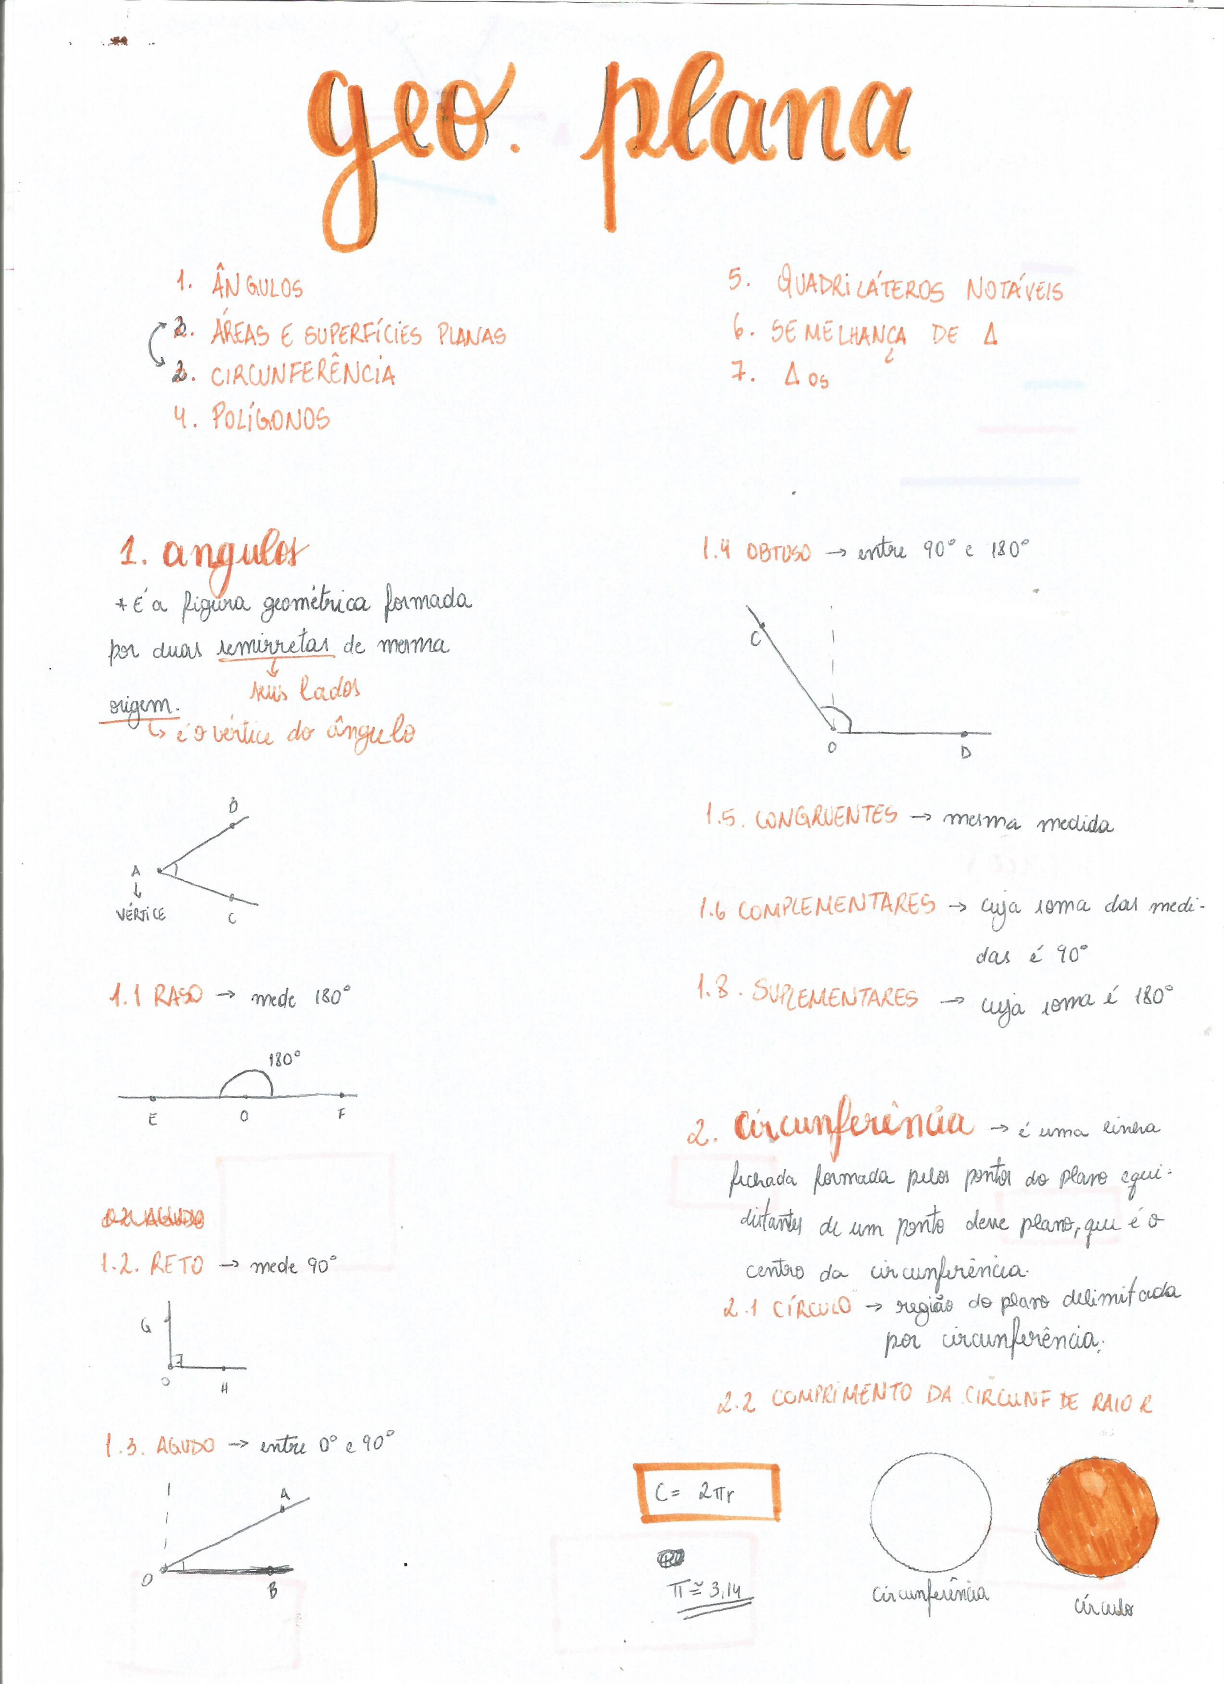 geo. plana
1. ÂNGULOS
2. ÁREAS E SUPERFÍCIES PLANAS
3. CIRCUNFERÊNCIA
4. POLÍGONOS
5. QUADRILÁTEROS NOTÁVEIS
6. SEMELHANÇA DE Δ
7. Δ os
1. angulos
* É a figura geométrica formada
por duas semirretas de mesma
seus lados
origem.
é o vértice do ângulo
D
A
VÉRTICE
C
1.1 RASO → mede 180°
180°
E O F
1.2. RETO → mede 90°
G
O H
1.3. AGUDO → entre 0° e 90°
A
O
B
1.4 OBTUSO → entre 90° e 180°
C
O D
1.5. CONGRUENTES → mesma medida
1.6 COMPLEMENTARES → cuja soma das medi-
das é 90°
1.8. SUPLEMENTARES → cuja soma é 180°
2. circunferência → é uma linha
fechada formada pelos pontos do plano equi-
distantes de um ponto desse plano, que é o
centro da circunferência.
2.1 CÍRCULO → região do plano delimitada
por circunferência.
2.2 COMPRIMENTO DA CIRCUNF DE RAIO R
C = 2πr
π ≅ 3,14
circunferência
círculo